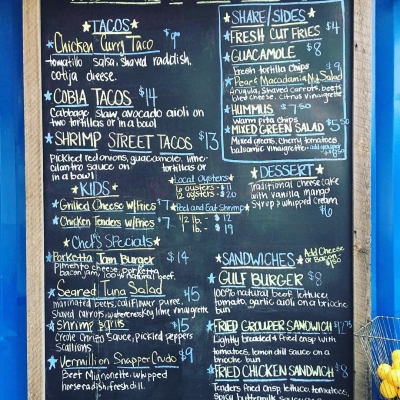 TACOS
Chicken Curry Taco $9
tomatillo salsa, shaved raddish,
cotija cheese.
COBIA TACOS $14
Cabbage slaw avocado aioli on
two tortillas or in a bowl
SHRIMP STREET TACOS $13
Pickled red onions, guacamole, lime-
cilantro sauce on tortillas or
in a bowl
KIDS
Grilled Cheese w/Fries $7
Chicken Tenders w/Fries $7
Local Oysters
6 oysters - $11
12 oysters - $20
Peel and Eat Shrimp
1/2 lb. - $12
1 lb. - $19
Chef's Specials
Porketta Jam Burger $14
Pimento cheese, porketta,
bacon jam, 100% natural beef.
Seared Tuna Salad $15
marinated beets, califlower puree,
shaved carrots, key lime vinaigrette
Shrimp & grits $15
Creole Sauce, pickled peppers
scallions
Vermillion Snapper Crudo $9
Beet Mignonette, whipped
horseradish, fresh dill.
SHARE/SIDES
FRESH CUT FRIES $4
GUACAMOLE $8
fresh tortilla chips
Pear & Macadamia Nut Salad $9
Arugula, shaved carrots, beets
bleu cheese, citrus vinaigrette
HUMMUS $7.50
warm pita chips
MIXED GREEN SALAD $5
Mixed greens, cherry tomatoes
balsamic vinaigrette
DESSERT
Traditional cheesecake
with vanilla mango
syrup & whipped cream
$6
SANDWICHES
Add Cheese
or Bacon
GULF BURGER $8
100% natural beef, lettuce,
tomato, garlic aioli on a brioche
bun
FRIED GROUPER SANDWICH $17.75
Lightly breaded & fried crisp with
tomatoes, lemon dill sauce on a
brioche bun
FRIED CHICKEN SANDWICH $8
Tenders fried crisp, lettuce, tomatoes,
spicy buttermilk sauce